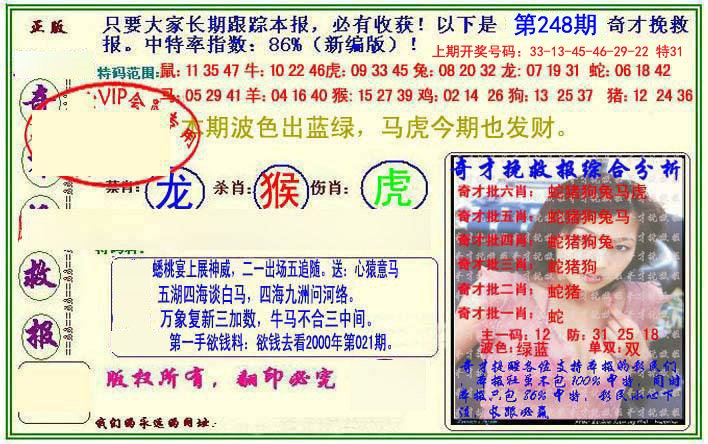 正版
只要大家长期跟踪本报，必有收获！以下是 第248期 奇才挽救
报。中特率指数：86%（新编版）！
上期开奖号码：33-13-45-46-29-22 特31
特码范围:鼠: 11 35 47 牛: 10 22 46虎: 09 33 45 兔: 08 20 32 龙: 07 19 31 蛇: 06 18 42
马: 05 29 41 羊: 04 16 40 猴: 15 27 39 鸡: 02 14 26 狗: 13 25 37 猪: 12 24 36
VIP会员
专用
本期波色出蓝绿，马虎今期也发财。
奇
救
报
禁肖: 龙 杀肖: 猴 伤肖: 虎
蟠桃宴上展神威，二一出场五追随。送：心猿意马
五湖四海谈白马，四海九洲问河络。
万象复新三加数，牛马不合三中间。
第一手欲钱料：欲钱去看2000年第021期。
版权所有，翻印必究
我们的永远的网址:
奇才挽救报综合分析
奇才批六肖: 蛇猪狗兔马虎
奇才批五肖: 蛇猪狗兔马
奇才批四肖: 蛇猪狗兔
奇才批三肖: 蛇猪狗
奇才批二肖: 蛇猪
奇才批一肖: 蛇
主一码: 12 防: 31 25 18
波色: 绿蓝 单双: 双
奇才提醒各位支持本报的彩民们
，本报社虽不包100%中特，同时
本报只包86%中特，彩民小心下
注，长跟必赢